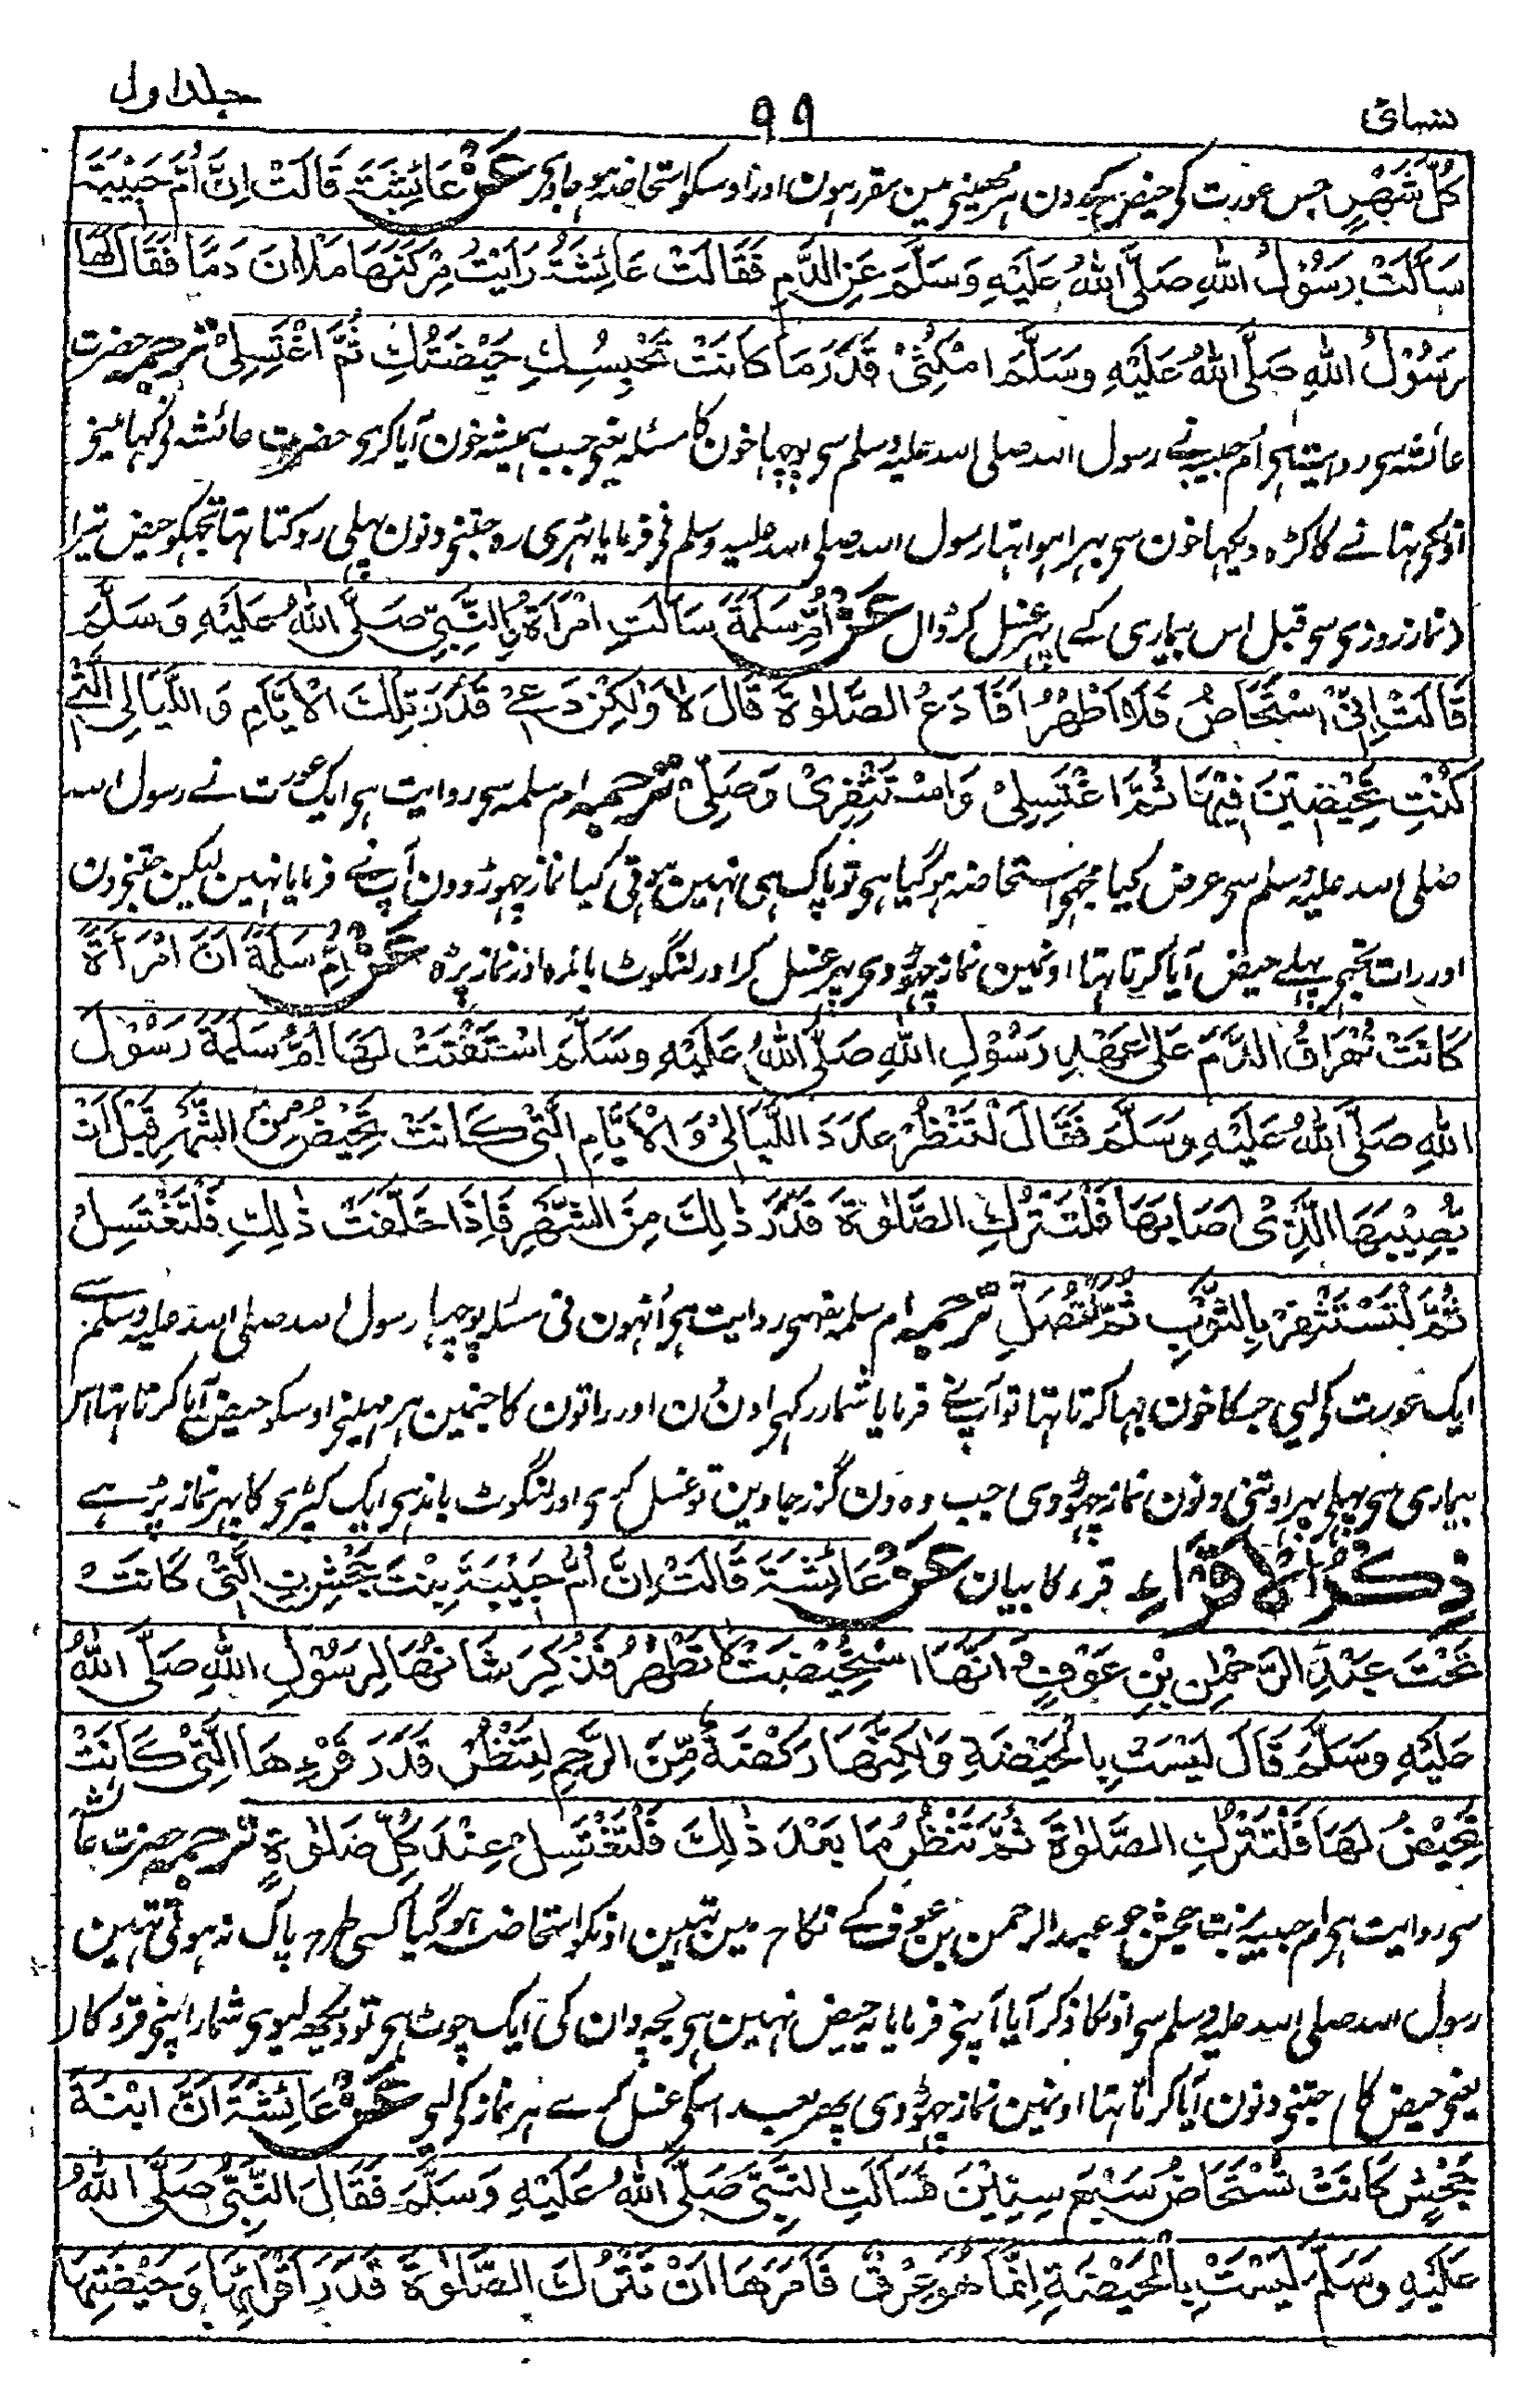 نسائی ۹۹ جلد اول
كُلَّ شَهْرٍ جس عورت کی حیض کے کچھ دن ہر مہینے مین مقرر ہون اور اوسکو استحاضہ ہو جاوے عَنْ عَائِشَةَ قَالَتْ اِنَّ اُمَّ حَبِيْبَةَ
سَأَلَتْ رَسُوْلَ اللهِ صَلَّى اللهُ عَلَيْهِ وَسَلَّمَ عَنِ الدَّمِ فَقَالَتْ عَائِشَةُ رَأَيْتُ مِرْكَنَهَا مَلْاٰنَ دَمًا فَقَالَ لَهَا
رَسُوْلُ اللهِ صَلَّى اللهُ عَلَيْهِ وَسَلَّمَ امْكُثِيْ قَدْرَ مَا كَانَتْ تَحْبِسُكِ حَيْضَتُكِ ثُمَّ اغْتَسِلِيْ ترجمہ حضرت
عائشہ سے روایت ہے ام حبیبہ نے رسول اللہ صلی اللہ علیہ وسلم سے پوچھا خون کا مسئلہ یعنے جب ہمیشہ خون آیا کرے حضرت عائشہ نے کہا مینے
اونکے نہانے کا کڑہ دیکھا خون سے بہرا ہوا تہا رسول اللہ صلی اللہ علیہ وسلم نے فرمایا ٹہری رہ جتنے دنون پہلی روکتا تہا تجھکو حیض تیرا
(نماز روزی سے قبل اس بیماری کے) پہر غسل کر ڈال عَنْ اُمِّ سَلَمَةَ سَأَلَتِ امْرَأَةٌ بِالنَّبِيِّ صَلَّى اللهُ عَلَيْهِ وَسَلَّمَ
قَالَتْ اِنِّيْ اُسْتَحَاضُ فَلَا اَطْهُرُ اَفَأَدَعُ الصَّلٰوةَ قَالَ لَا وَلٰكِنْ دَعِيْ قَدْرَ تِلْكَ الْاَيَّامِ وَاللَّيَالِي الَّتِيْ
كُنْتِ تَحِيْضِيْنَ فِيْهَا ثُمَّ اغْتَسِلِيْ وَاسْتَثْفِرِيْ وَصَلِّيْ ترجمہ ام سلمہ سے روایت ہے ایک عورت نے رسول اللہ
صلی اللہ علیہ وسلم سے عرض کیا مجھے استحاضہ ہو گیا ہے تو پاک ہی نہین ہوتی کیا نماز چہوڑ دون آپ نے فرمایا نہین لیکن جتنے دن
اور رات تجھے پہلے حیض آیا کرتا تہا اونمین نماز چہوڑ دی پہر غسل کر اور لنگوٹ باندہ اور نماز پڑہ عَنْ اُمِّ سَلَمَةَ اَنَّ امْرَأَةً
كَانَتْ تُهَرَاقُ الدَّمَ عَلٰى عَهْدِ رَسُوْلِ اللهِ صَلَّى اللهُ عَلَيْهِ وَسَلَّمَ اسْتَفْتَتْ لَهَا اُمُّ سَلَمَةَ رَسُوْلَ
اللهِ صَلَّى اللهُ عَلَيْهِ وَسَلَّمَ فَقَالَ لِتَنْظُرْ عَدَدَ اللَّيَالِيْ وَالْاَيَّامِ الَّتِيْ كَانَتْ تَحِيْضُ مِنَ الشَّهْرِ قَبْلَ اَنْ
يُّصِيْبَهَا الَّذِيْ اَصَابَهَا فَلْتَتْرُكِ الصَّلٰوةَ قَدْرَ ذٰلِكَ مِنَ الشَّهْرِ فَاِذَا خَلَّفَتْ ذٰلِكَ فَلْتَغْتَسِلْ
ثُمَّ لْتَسْتَثْفِرْ بِالثَّوْبِ ثُمَّ لْتُصَلِّ ترجمہ ام سلمہ سے روایت ہے اُنہون نی مسئلہ پوچہا رسول اللہ صلی اللہ علیہ وسلم سے
ایک عورت کے لیے جسکا خون بہا کرتا تہا تو آپ نے فرمایا شمار رکہے اون دن اور راتون کا جنمین ہر مہینے اوسکو حیض آیا کرتا تہا اس
بیماری سے پہلے پہر اوتنی دنون نماز چہوڑ دی جب وہ دن گزر جاوین تو غسل کرے اور لنگوٹ باندہے ایک کپڑے کا پہر نماز پڑہے
ذِكْرُ الْاَقْرَاءِ قرء کا بیان عَنْ عَائِشَةَ قَالَتْ اِنَّ اُمَّ حَبِيْبَةَ بِنْتَ جَحْشٍ الَّتِيْ كَانَتْ
تَحْتَ عَبْدِ الرَّحْمٰنِ بْنِ عَوْفٍ وَاَنَّهَا اسْتُحِيْضَتْ لَا تَطْهُرُ فَذُكِرَ شَانُهَا لِرَسُوْلِ اللهِ صَلَّى اللهُ
عَلَيْهِ وَسَلَّمَ قَالَ لَيْسَتْ بِالْحَيْضَةِ وَلٰكِنَّهَا رَكْضَةٌ مِّنَ الرَّحِمِ لِتَنْظُرْ قَدْرَ قَرْءِهَا الَّتِيْ كَانَتْ
تَحِيْضُ لَهَا فَلْتَتْرُكِ الصَّلٰوةَ ثُمَّ تَنْظُرُ مَا بَعْدَ ذٰلِكَ فَلْتَغْتَسِلْ عِنْدَ كُلِّ صَلٰوةٍ ترجمہ حضرت عائشہ
سے روایت ہے ام حبیبہ بنت جحش جو عبد الرحمن بن عوف کے نکاح مین تہین اونکو استحاضہ ہو گیا کسی طرح پاک نہ ہوتی تہین
رسول اللہ صلی اللہ علیہ وسلم سے اونکا ذکر آیا آپنے فرمایا یہ حیض نہین ہے بچہ دان کی ایک چوٹ ہے تو دیکھ لیوے شمار اپنے قرء کا
یعنے حیض کا جتنے دنون آیا کرتا تہا اونمین نماز چہوڑ دی پھر بعد اسکے غسل کرے ہر نماز کے لیے عَنْ عَائِشَةَ اَنَّ ابْنَةَ
جَحْشٍ كَانَتْ تُسْتَحَاضُ سَبْعَ سِنِيْنَ فَسَأَلَتِ النَّبِيَّ صَلَّى اللهُ عَلَيْهِ وَسَلَّمَ فَقَالَ النَّبِيُّ صَلَّى اللهُ
عَلَيْهِ وَسَلَّمَ لَيْسَتْ بِالْحَيْضَةِ اِنَّمَا هُوَ عِرْقٌ فَاَمَرَهَا اَنْ تَتْرُكَ الصَّلٰوةَ قَدْرَ اَقْرَائِهَا وَحَيْضَتِهَا